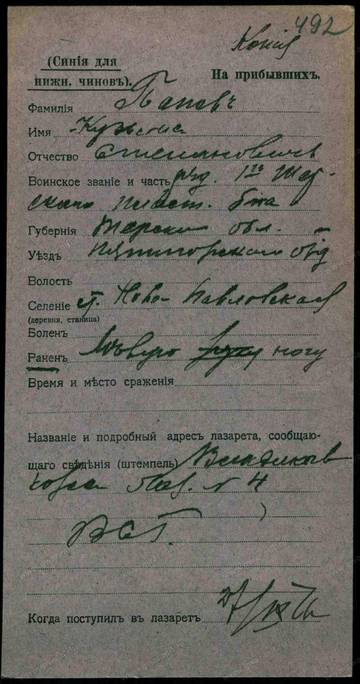 492
Копія
(Синія для
нижн. чиновъ).
На прибывшихъ.
Фамилія Паповъ
Имя Кузьма
Отчество Степановичъ
Воинское званіе и часть ряд. 1го Тер-
скаго пласт. б-на
Губернія Терской обл.
Уѣздъ Пятигорскаго отд
Волость
Селеніе ст. Ново-Павловская
(деревня, станица)
Боленъ
Раненъ лѣвую ногу
Время и мѣсто сраженія
Названіе и подробный адресъ лазарета, сообщаю-
щаго свѣдѣнія (штемпель) Владикав
Лаз. № 4
Когда поступилъ въ лазаретъ